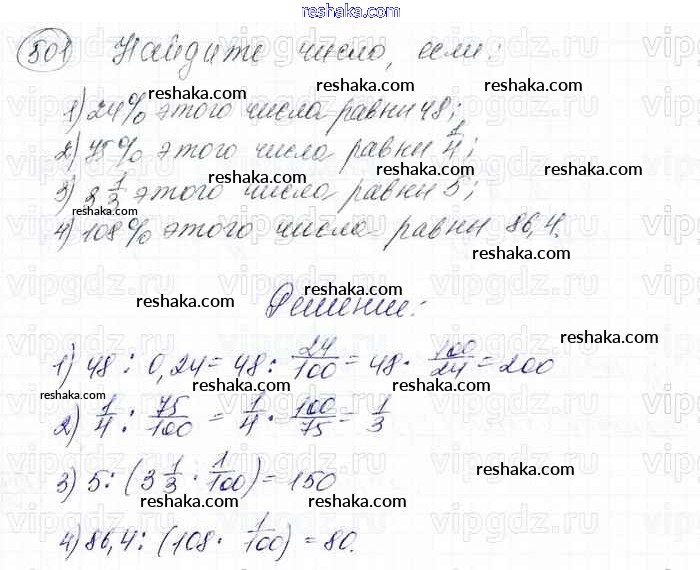 reshaka.com
501 Найдите число, если:
reshaka.com reshaka.com
1) 24% этого числа равны 48;
reshaka.com
2) 75% этого числа равны 1/4;
reshaka.com reshaka.com
3) 3 1/3 этого числа равны 5;
reshaka.com
4) 108% этого числа равны 86,4.
reshaka.com reshaka.com
reshaka.com
Решение:
reshaka.com
1) 48 : 0,24 = 48 : 24/100 = 48 · 100/24 = 200
reshaka.com reshaka.com
2) 1/4 : 75/100 = 1/4 · 100/75 = 1/3
reshaka.com
reshaka.com
3) 5 : (3 1/3 · 1/100) = 150
reshaka.com reshaka.com
4) 86,4 : (108 · 1/100) = 80.
reshaka.com